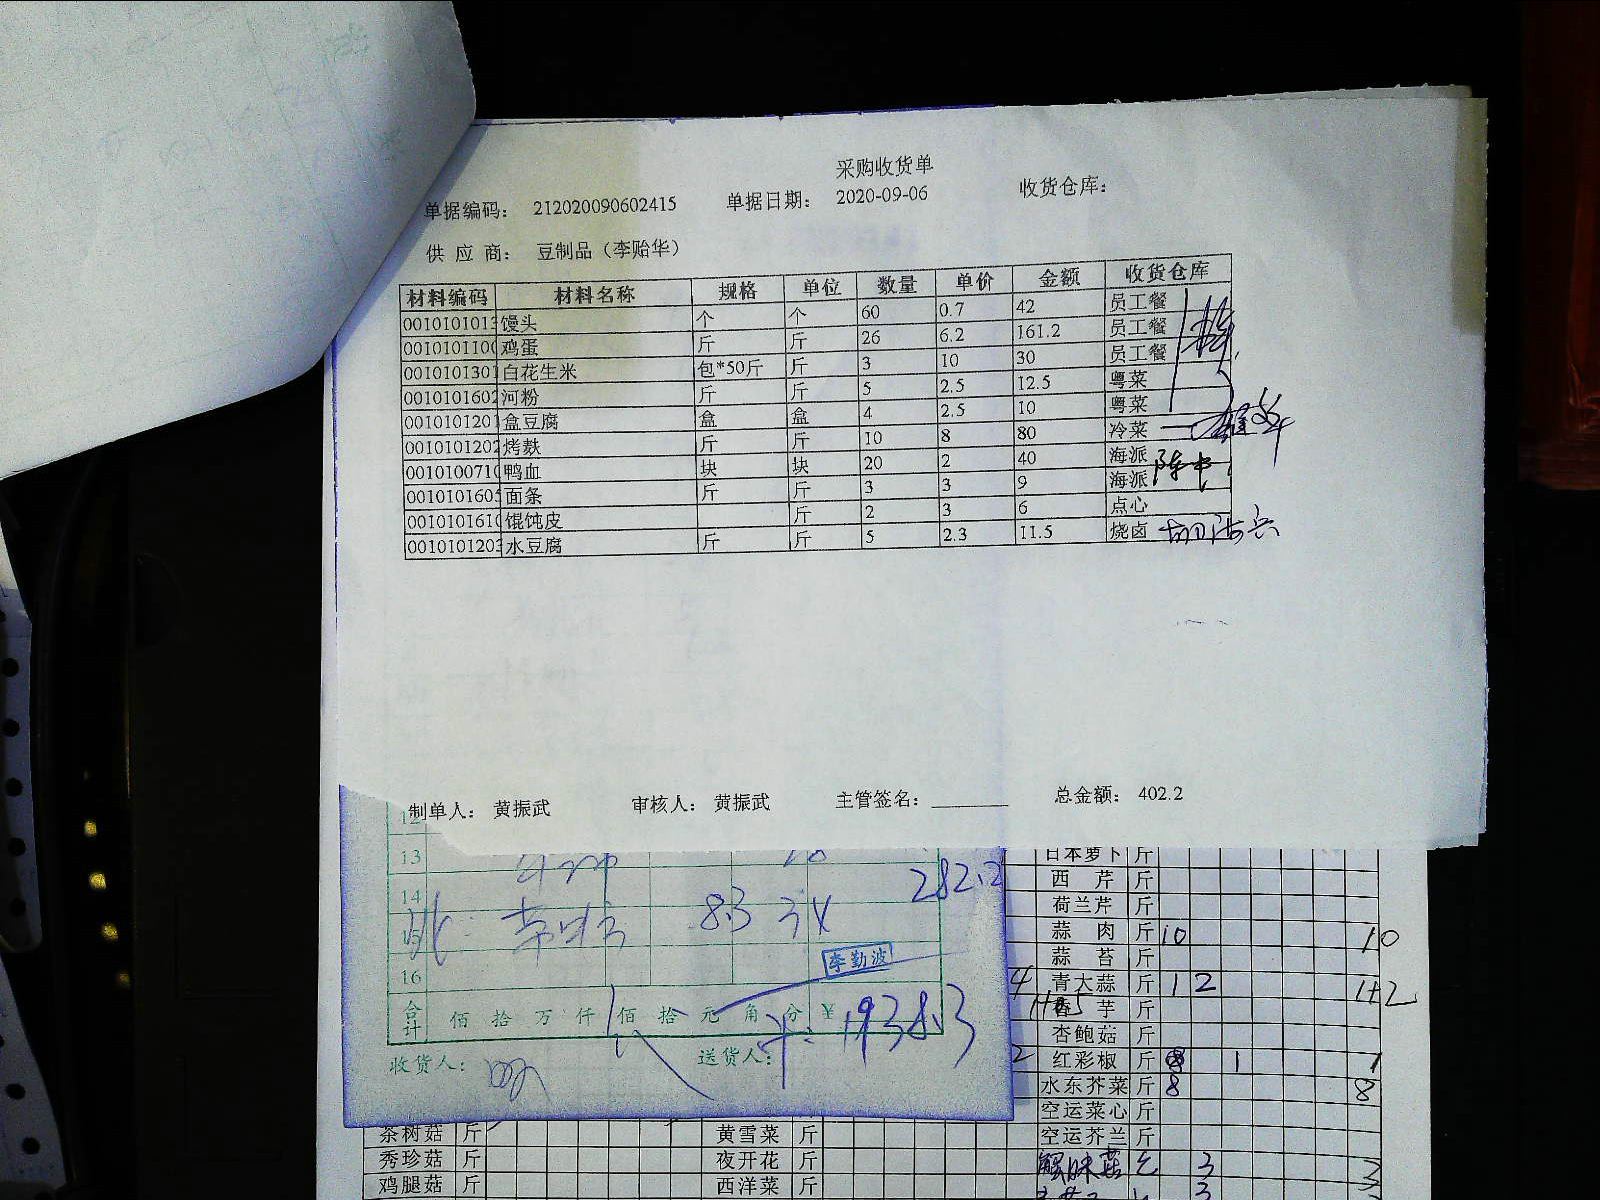 采购收货单
单据编码： 212020090602415 单据日期： 2020-09-06 收货仓库：
供 应 商： 豆制品（李贻华）
材料编码 材料名称 规格 单位 数量 单价 金额 收货仓库
0010101013 馒头 个 个 60 0.7 42 员工餐
001010110 鸡蛋 斤 斤 26 6.2 161.2 员工餐
001010130 白花生米 包*50斤 斤 3 10 30 员工餐
001010160 河粉 斤 斤 5 2.5 12.5 粤菜
001010120 盒豆腐 盒 盒 4 2.5 10 粤菜
001010120 烤麸 斤 斤 10 8 80 冷菜
001010071 鸭血 块 块 20 2 40 海派
001010160 面条 斤 斤 3 3 9 海派
001010161 馄饨皮 斤 2 3 6 点心
001010120 水豆腐 斤 斤 5 2.3 11.5 烧卤
制单人： 黄振武 审核人： 黄振武 主管签名： 总金额： 402.2
12
13 日本萝卜 斤
14 282.2 西 芹 斤
荷兰芹 斤
15 8.3 34 蒜 肉 斤 10 10
李勤波 蒜 苔 斤
16 4 青大蒜 斤 1 2 1+2
合计 佰 拾 万 仟 佰 拾 元 角 分 ￥ 1938.3 香 芋 斤
杏鲍菇 斤
收货人： 送货人： 2 红彩椒 斤 1 1
水东芥菜 斤 8 8
空运菜心 斤
茶树菇 斤 黄雪菜 斤 空运芥兰 斤
秀珍菇 斤 夜开花 斤 蟹味菇 3 3
鸡腿菇 斤 西洋菜 斤 3 3